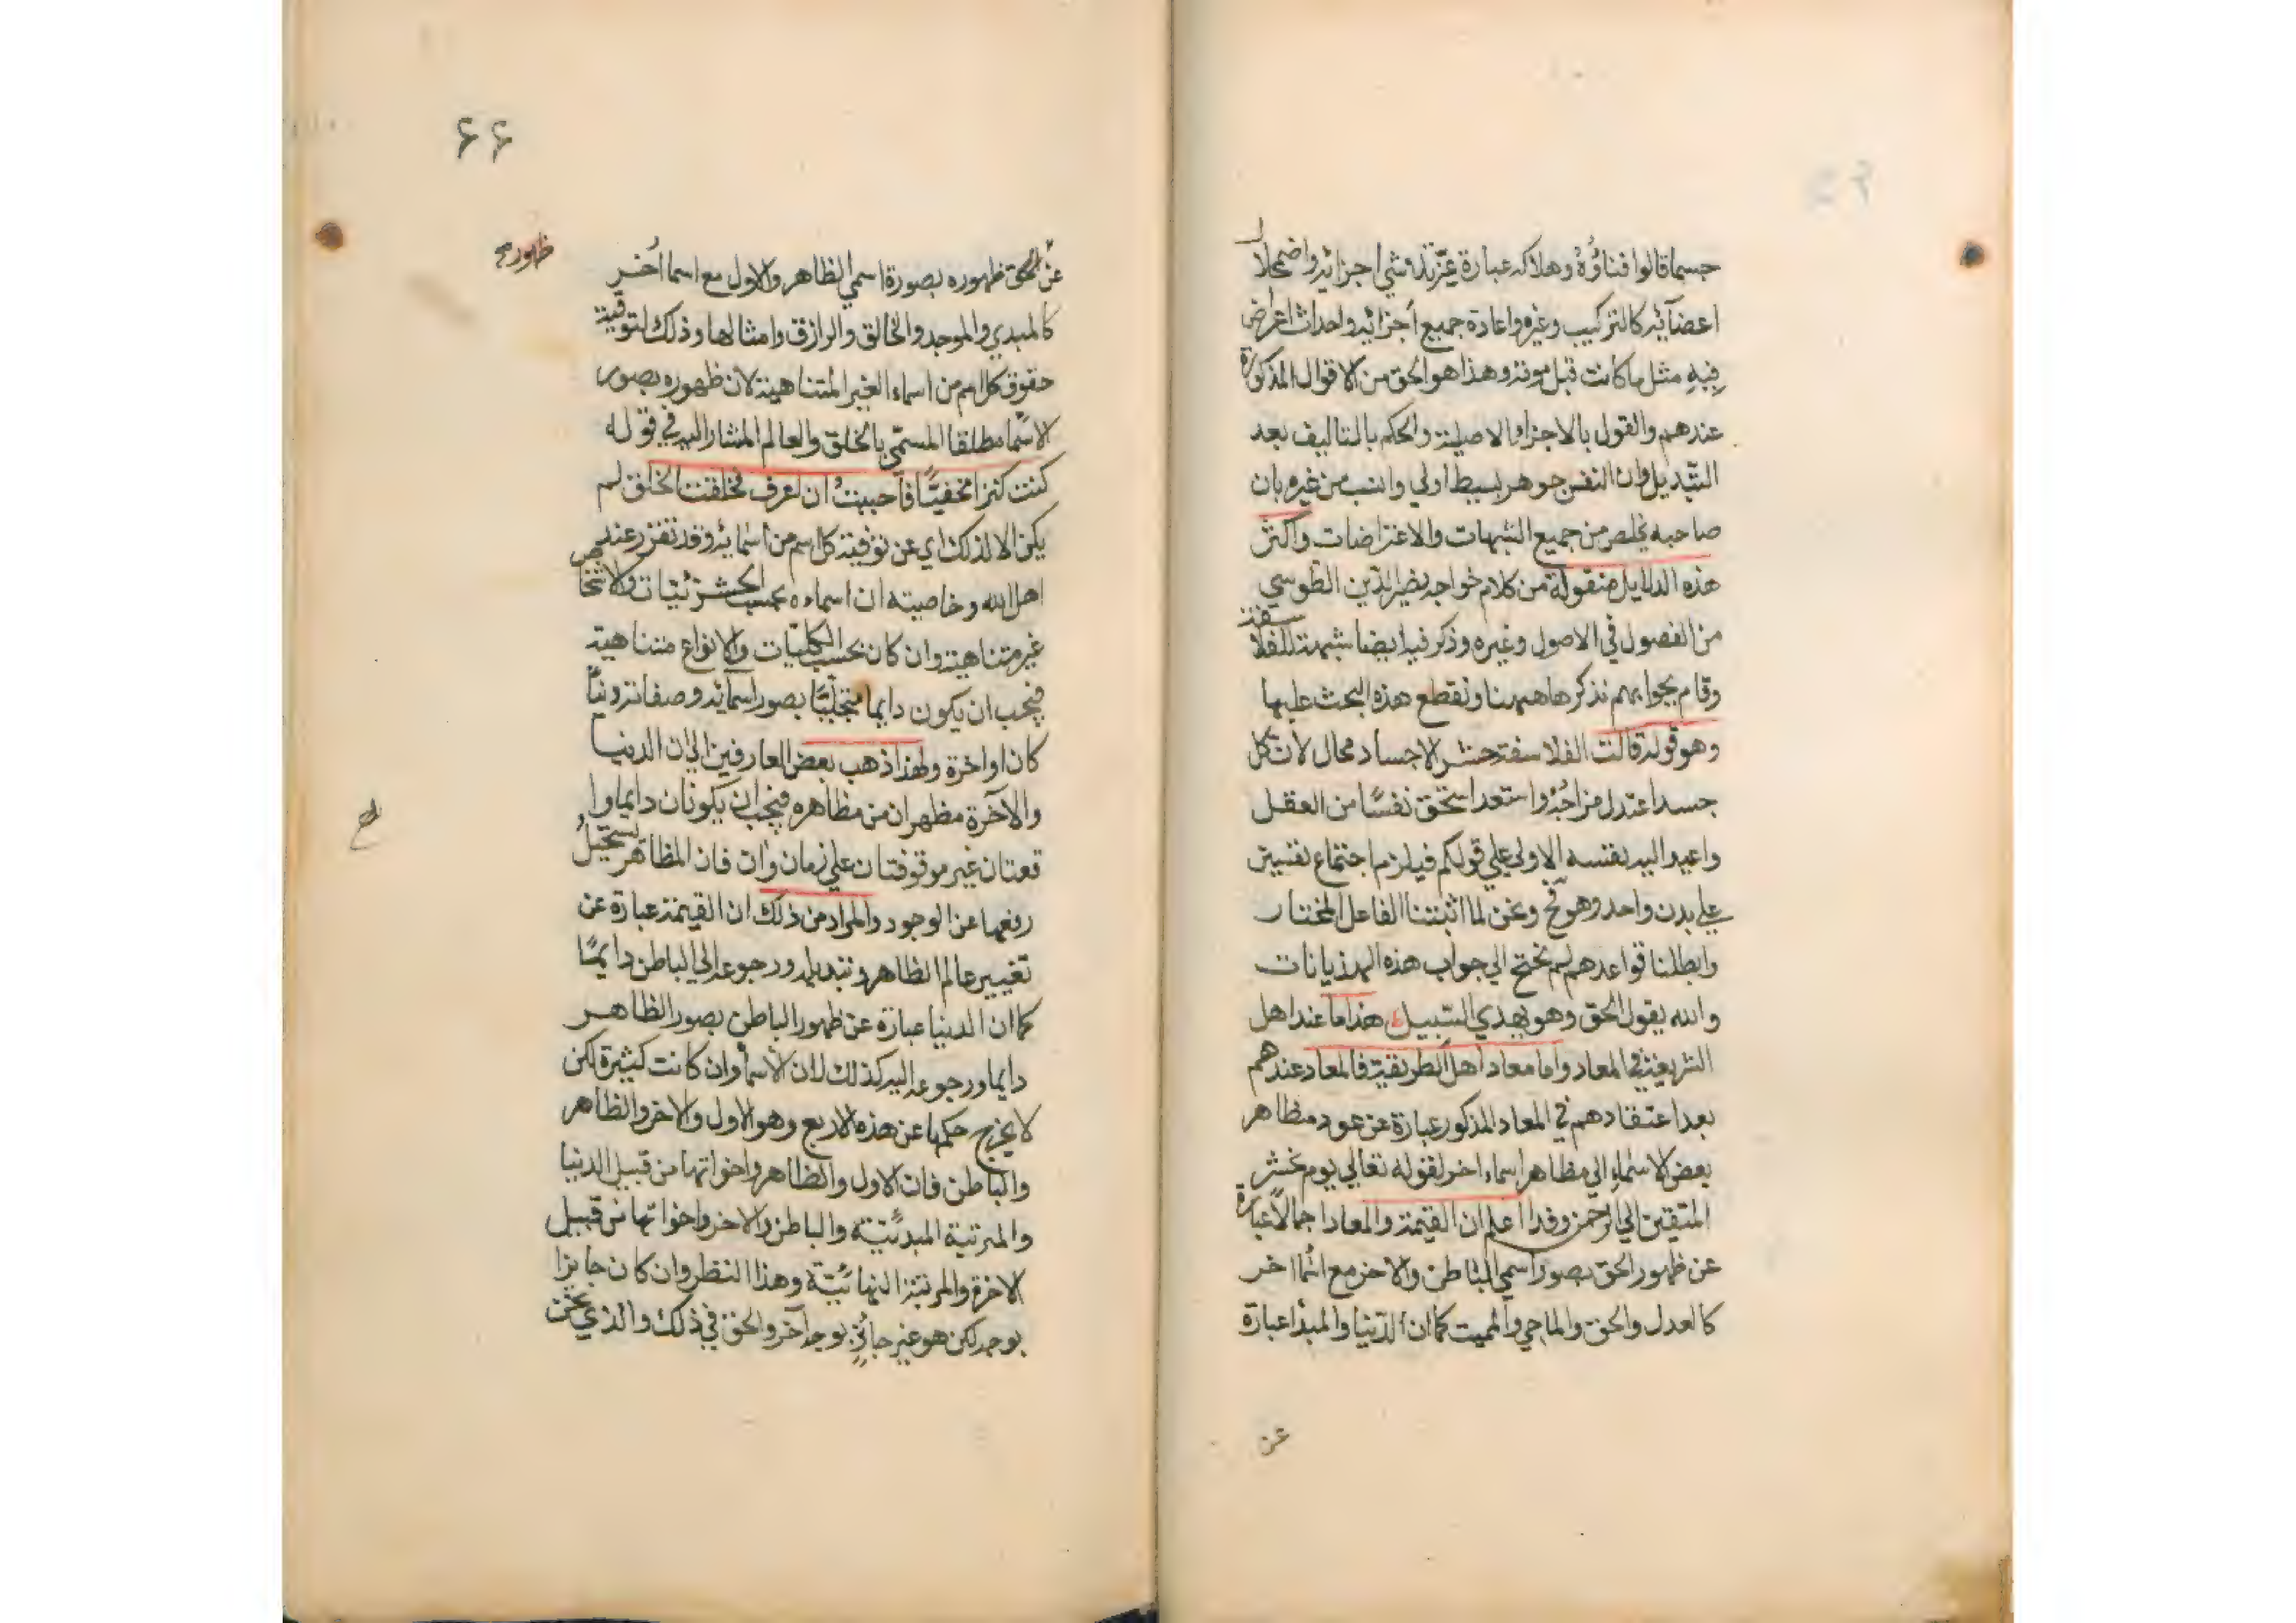 جسما قالوا فناؤه وهلاكه عبارة عن تلاشي اجزائه واضمحلال
اعضائه كالتركيب وغيره واعادة جميع أجزائه واحداث اعراض
فيه مثل ما كانت قبل موته وهذا هو الحق من الاقوال المذكورة
عندهم والقول بالاجزاء الاصلية والحكم بالتاليف بعد
التبديل وان النفس جوهر بسيط اولي وانسب من غيره بان
صاحبه يخلص من جميع الشبهات والاعتراضات واكثر
هذه الدلايل منقولة من كلام خواجه نصير الدين الطوسي
من الفصول في الاصول وغيره وذكر فيه ايضا شبهة للفلاسفة
وقام بجوابهم نذكرها ههنا ونقطع هذه البحث عليها
وهو قوله قالت الفلاسفة حشر الاجساد محال لان كل
جسد اعتدل مزاجه واستعد استحق نفسا من العقل
واعيد اليه نفسه الاولي علي قولكم فيلزم اجتماع نفسين
علي بدن واحد وهو مح ونحن لما اثبتنا الفاعل المختار
وابطلنا قواعدهم لم نحتج الي جواب هذه الهذيانات
والله يقول الحق وهو يهدي السبيل هذا ما عند اهل
الشريعة في المعاد واما معاد اهل الطريقة فالمعاد عندهم
بعد اعتقادهم في المعاد المذكور عبارة عن عود مظاهر
بعض الاسماء الي مظاهر اسماء اخر لقوله تعالي يوم نحشر
المتقين الي الرحمن وفدا اعلم ان القيمة والمعاد اجمالا عبارة
عن ظهور الحق بصورة اسمي الباطن والاخر مع اسما اخر
كالعدل والحق والماحي والمميت كما ان الدنيا والمبدأ عبارة
عن
۶۶
ظهوره
عن الحق ظهوره بصورة اسمي الظاهر والاول مع اسما أخر
كالمبدي والموجد والخالق والرازق وامثالها وذلك لتوفية
حقوق كل اسم من اسماء الغير المتناهية لان ظهوره بصور
الاسما مطلقا المسمي بالخلق والعالم المشار اليه في قوله
كنت كنزا مخفيا فأحببت ان اعرف فخلقت الخلق لم
يكن الا لذلك اي عن توفية كل اسم من أسمائه وقد تقرر عند
اهل الله وخاصيته ان اسماءه بحسب الجزئيات والاشخاص
غير متناهية وان كان بحسب الكليات والانواع متناهية
فيجب ان يكون دايما متجليا بصور اسمائه وصفاته دنيا
كان او اخرة ولهذا ذهب بعض العارفين الي ان الدنيا
والآخرة مظهران من مظاهره فيجب ان يكونان دايما وا
قعتان غير موقوفتان علي زمان وان فان المظاهر يستحيل
رفعها عن الوجود والمراد من ذلك ان القيمة عبارة عن
تغيير عالم الظاهر وتبديله ورجوعه الي الباطن دايما
كما ان الدنيا عبارة عن ظهور الباطن بصور الظاهر
دايما ورجوعه اليه كذلك لان الاسما وان كانت كثيرة لكن
لا يخرج حكمها عن هذه الاربع وهو الاول والاخر والظاهر
والباطن فان الاول والظاهر واخواتها من قبيل الدنيا
والمرتبة المبدئية والباطن والاخر واخواتها من قبيل
الاخرة والمرتبة النهائية وهذا النظر وان كان جايزا
بوجه لكن هو غير جائز بوجه آخر والحق في ذلك والذي نحن